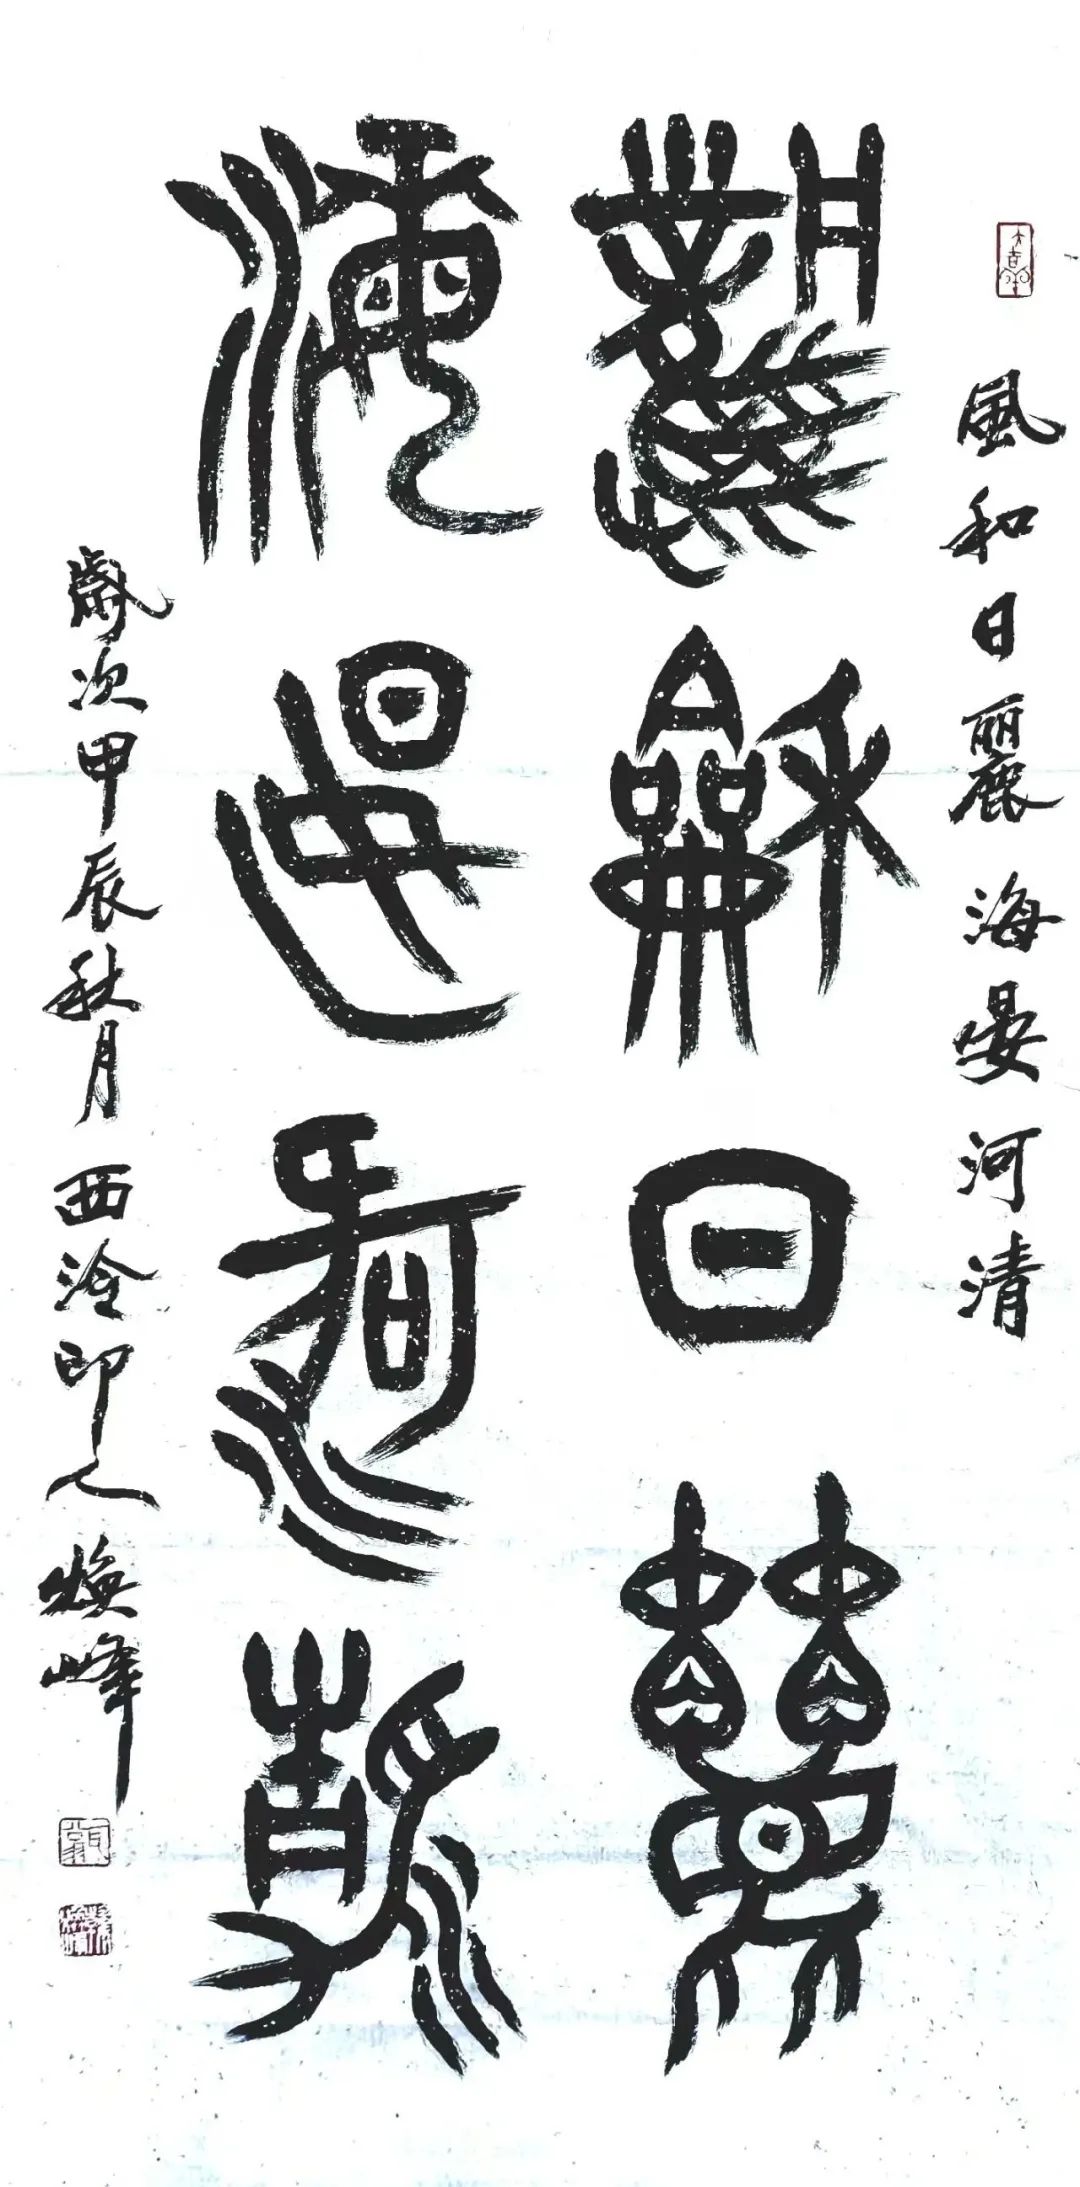 風和日麗海晏河清
風龢日麗
海晏河清
歲次甲辰秋月西泠印人煥峰